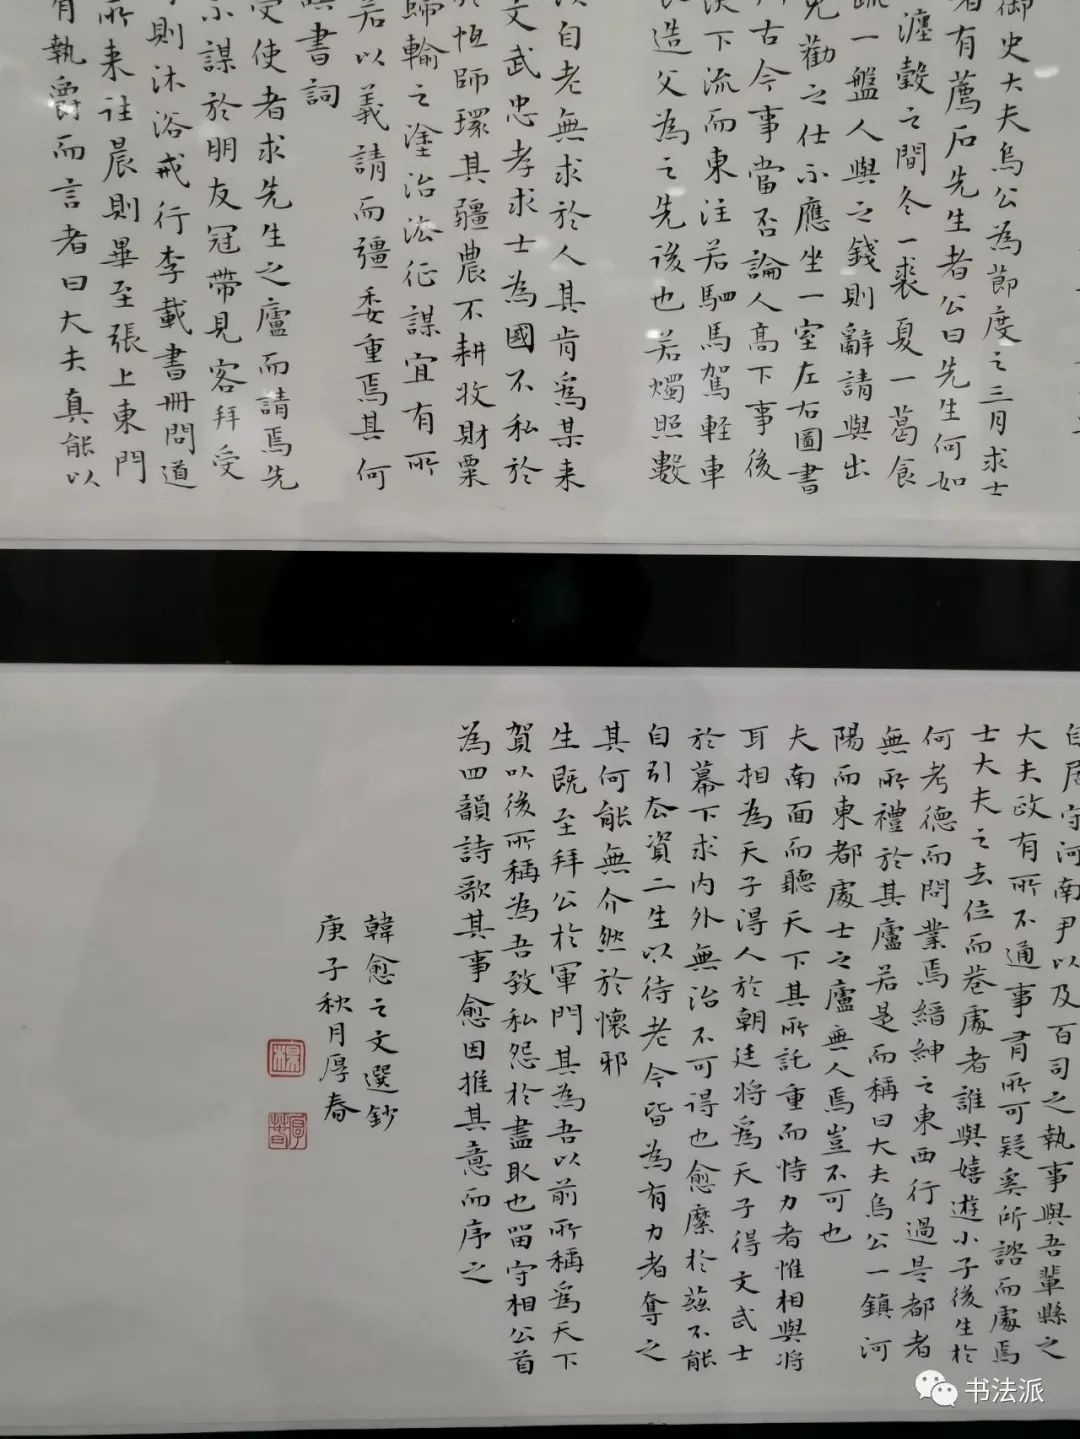 御史大夫烏公為節度之三月求士
者有薦石先生者公曰先生何如
瀍穀之間冬一裘夏一葛食
疏一盤人與之錢則辭請與出
免勸之仕不應坐一室左右圖書
古今事當否論人高下事後
決下流而東注若駟馬駕輕車
造父為之先後也若燭照數
自老無求於人其肯為某来
文武忠孝求士為國不私於
於恆師環其疆農不耕收財粟
歸輸之塗治法征謀宜有所
若以義請而彊委重焉其何
書詞
受使者求先生之廬而請焉先
不謀於朋友冠帶見客拜受
則沐浴戒行李載書冊問道
所来往晨則畢至張上東門
有執爵而言者曰大夫真能以
自居守河南尹以及百司之執事與吾輩縣之
大夫政有所不通事有所可疑奚所諮而處焉
士大夫之去位而巷處者誰與嬉遊小子後生於
何考德而問業焉縉紳之東西行過是都者
無所禮於其廬若是而稱曰大夫烏公一鎮河
陽而東都處士之廬無人焉豈不可也
夫南面而聽天下其所託重而恃力者惟相與將
耳相為天子得人於朝廷將為天子得文武士
於幕下求內外無治不可得也愈縻於茲不能
自引去資二生以待老今皆為有力者奪之
其何能無介然於懷邪
生既至拜公於軍門其為吾以前所稱為天下
賀以後所稱為吾致私怨於盡取也留守相公首
為四韻詩歌其事愈因推其意而序之
韓愈之文選鈔
庚子秋月厚春
书法派